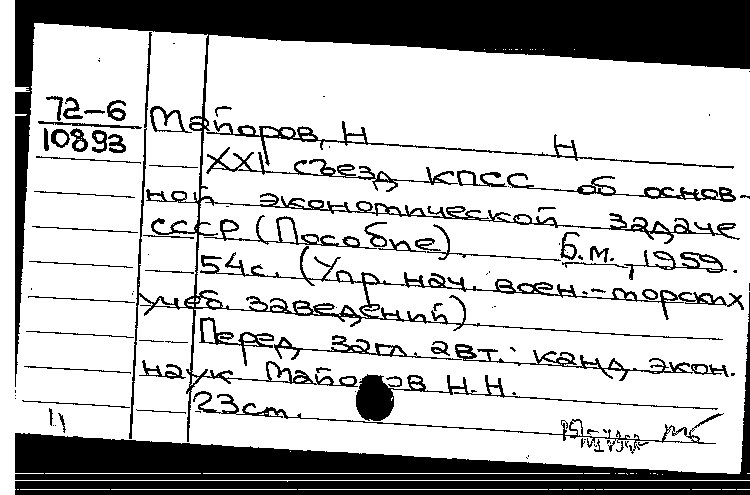 72-6
10893
Майоров, Н Н
XXI съезд КПСС об основ-
ной экономической задаче
СССР (Пособие). Б.м., 1959.
54с. (Упр. нач. воен.-морских
учеб. заведений).
Перед загл. авт.: канд. экон.
наук Майоров Н.Н.
23см.